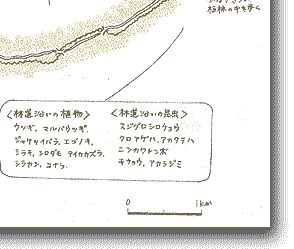 植林の中を歩く
〈林道沿いの植物〉
ウツギ, マルバウツギ,
ジャケツイバラ, エゴノキ,
ミヅキ, シロダモ テイカカズラ,
シラカシ, コナラ,
〈林道沿いの昆虫〉
スジグロシロチョウ
クロアゲハ, アカタテハ
ニシカワトンボ
キチョウ, アカシジミ
0 1km